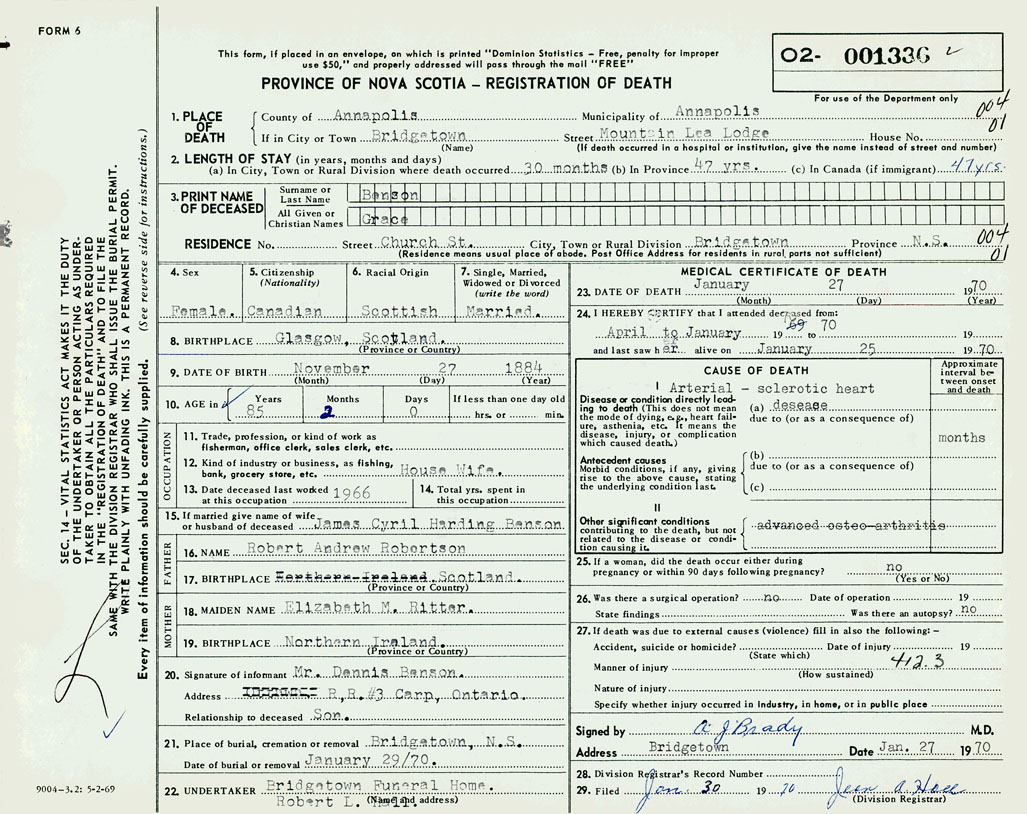 FORM 6
This form, if placed in an envelope, on which is printed "Dominion Statistics – Free, penalty for improper
use $50," and properly addressed will pass through the mail "FREE"
PROVINCE OF NOVA SCOTIA – REGISTRATION OF DEATH
02- 001336
For use of the Department only
004
01
1. PLACE OF DEATH County of Annapolis Municipality of Annapolis
If in City or Town Bridgetown Street Mountain Lea Lodge House No.
(Name) (If death occurred in a hospital or institution, give the name instead of street and number)
2. LENGTH OF STAY (in years, months and days)
(a) In City, Town or Rural Division where death occurred 30 months (b) In Province 47 yrs. (c) In Canada (if immigrant) 47 yrs.
3. PRINT NAME OF DECEASED Surname or Last Name Benson
All Given or Christian Names Grace
RESIDENCE No. Street Church St. City, Town or Rural Division Bridgetown Province N.S. 004
(Residence means usual place of abode. Post Office Address for residents in rural parts not sufficient) 01
4. Sex 5. Citizenship (Nationality) 6. Racial Origin 7. Single, Married, Widowed or Divorced (write the word)
Female. Canadian Scottish Married.
8. BIRTHPLACE Glasgow, Scotland.
(Province or Country)
9. DATE OF BIRTH November 27 1884
(Month) (Day) (Year)
10. AGE in Years Months Days If less than one day old
85 2 0 hrs. or min.
OCCUPATION
11. Trade, profession, or kind of work as
fisherman, office clerk, sales clerk, etc.
12. Kind of industry or business, as fishing,
bank, grocery store, etc. House Wife.
13. Date deceased last worked at this occupation 1966 14. Total yrs. spent in this occupation
15. If married give name of wife
or husband of deceased James Cyril Harding Benson
FATHER
16. NAME Robert Andrew Robertson
17. BIRTHPLACE Northern Ireland Scotland.
(Province or Country)
MOTHER
18. MAIDEN NAME Elizabeth M. Ritter.
19. BIRTHPLACE Northern Ireland.
(Province or Country)
20. Signature of informant Mr. Dennis Benson.
Address R.R.#3 Carp, Ontario.
Relationship to deceased Son.
21. Place of burial, cremation or removal Bridgetown, N.S.
Date of burial or removal January 29/70.
22. UNDERTAKER Bridgetown Funeral Home.
Robert L. (Name and address)
MEDICAL CERTIFICATE OF DEATH
23. DATE OF DEATH January 27 1970
(Month) (Day) (Year)
24. I HEREBY CERTIFY that I attended deceased from:
April to January 19 69 to 70 19
and last saw her alive on January 25 1970
CAUSE OF DEATH
Approximate interval between onset and death
I Arterial – sclerotic heart
Disease or condition directly leading to death (This does not mean the mode of dying, e.g., heart failure, asthenia, etc. It means the disease, injury, or complication which caused death.)
(a) desease
due to (or as a consequence of)
months
Antecedent causes
Morbid conditions, if any, giving rise to the above cause, stating the underlying condition last.
(b)
due to (or as a consequence of)
(c)
II
Other significant conditions
contributing to the death, but not related to the disease or condition causing it.
advanced osteo-arthritis
25. If a woman, did the death occur either during
pregnancy or within 90 days following pregnancy? no
(Yes or No)
26. Was there a surgical operation? no Date of operation 19
State findings Was there an autopsy? no
27. If death was due to external causes (violence) fill in also the following: –
Accident, suicide or homicide? Date of injury 19
(State which) 412.3
Manner of injury
(How sustained)
Nature of injury
Specify whether injury occurred in industry, in home, or in public place
Signed by A J Brady M.D.
Address Bridgetown Date Jan. 27 1970
28. Division Registrar's Record Number
29. Filed Jan. 30 19 70 Jean A
(Division Registrar)
SEC. 14 – VITAL STATISTICS ACT MAKES IT THE DUTY
OF THE UNDERTAKER OR PERSON ACTING AS UNDER-
TAKER TO OBTAIN ALL THE PARTICULARS REQUIRED
IN THE "REGISTRATION OF DEATH" AND TO FILE THE
SAME WITH THE DIVISION REGISTRAR WHO SHALL ISSUE THE BURIAL PERMIT.
WRITE PLAINLY WITH UNFADING INK. THIS IS A PERMANENT RECORD.
Every item of information should be carefully supplied. (See reverse side for instructions.)
9004-3.2: 5-2-69